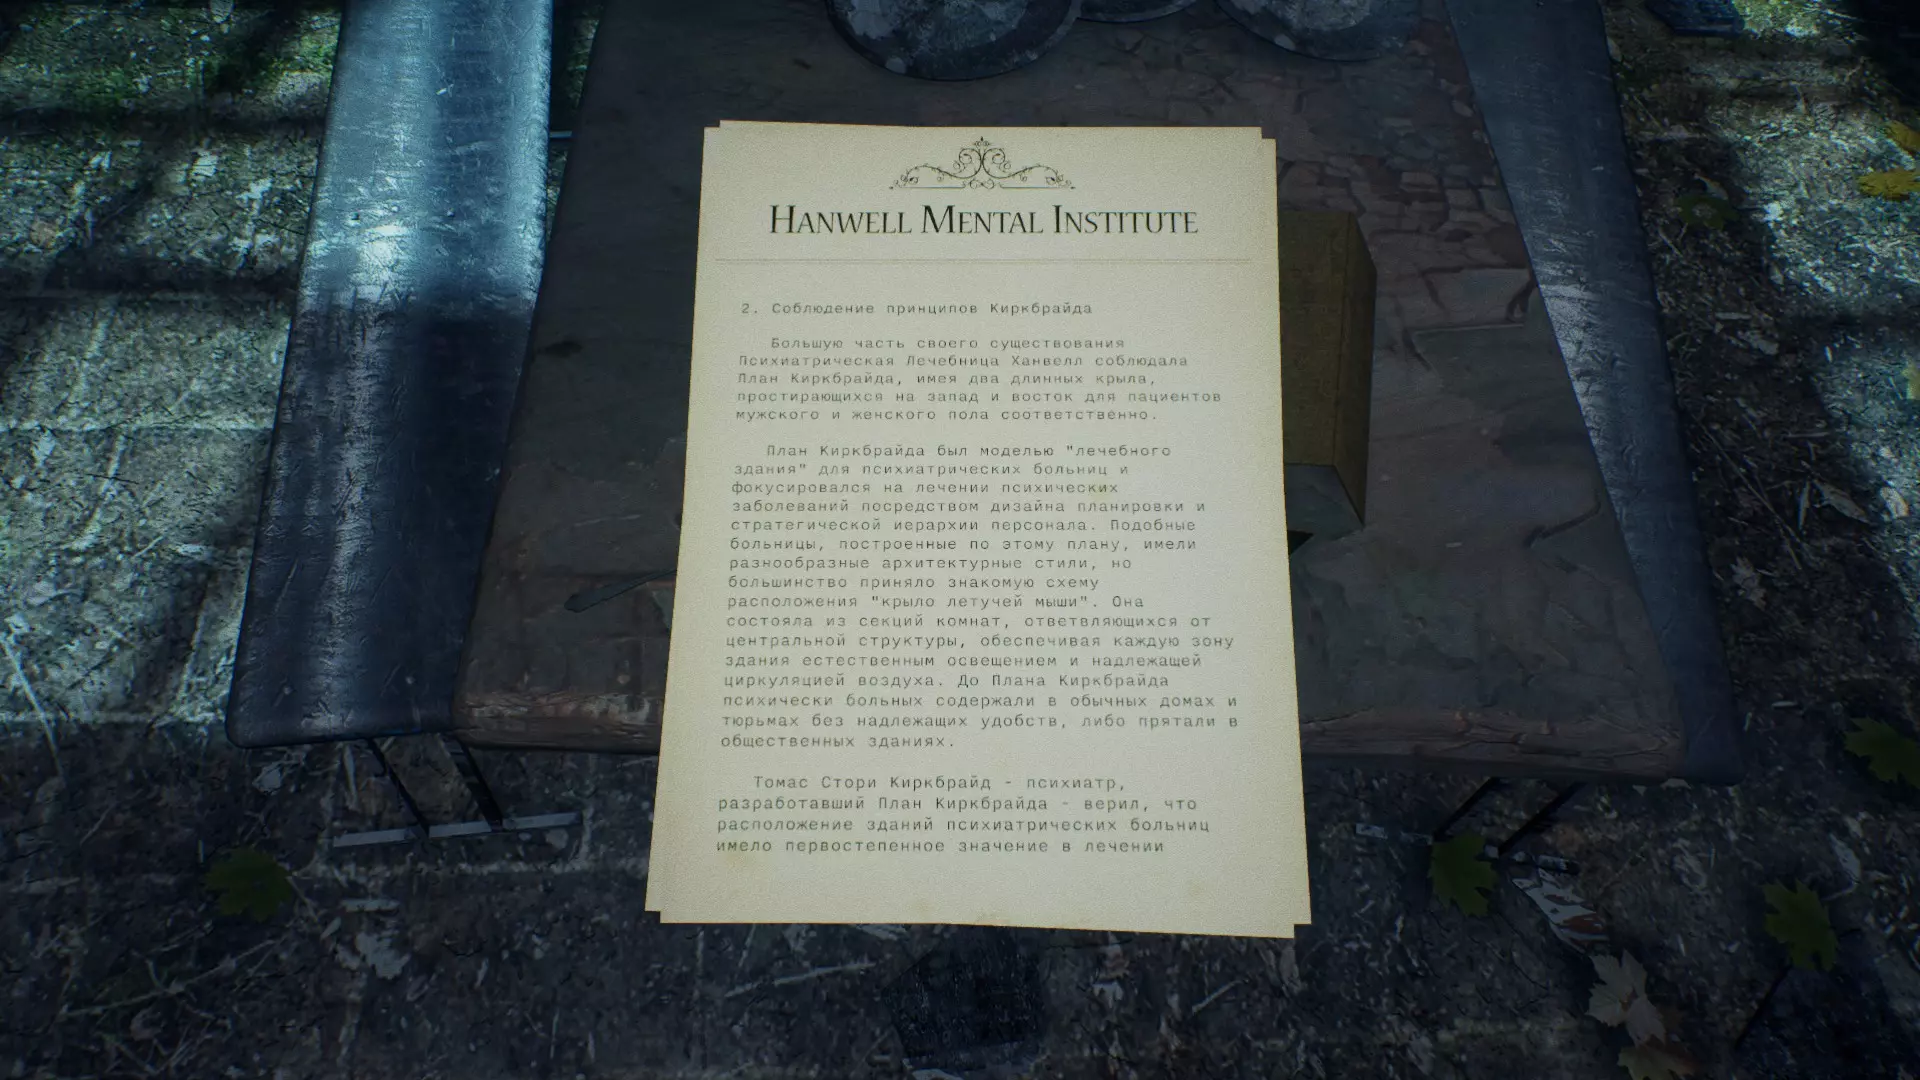 HANWELL MENTAL INSTITUTE
2. Соблюдение принципов Киркбрайда
Большую часть своего существования
Психиатрическая Лечебница Ханвелл соблюдала
План Киркбрайда, имея два длинных крыла,
простирающихся на запад и восток для пациентов
мужского и женского пола соответственно.
План Киркбрайда был моделью "лечебного
здания" для психиатрических больниц и
фокусировался на лечении психических
заболеваний посредством дизайна планировки и
стратегической иерархии персонала. Подобные
больницы, построенные по этому плану, имели
разнообразные архитектурные стили, но
большинство приняло знакомую схему
расположения "крыло летучей мыши". Она
состояла из секций комнат, ответвляющихся от
центральной структуры, обеспечивая каждую зону
здания естественным освещением и надлежащей
циркуляцией воздуха. До Плана Киркбрайда
психически больных содержали в обычных домах и
тюрьмах без надлежащих удобств, либо прятали в
общественных зданиях.
Томас Стори Киркбрайд - психиатр,
разработавший План Киркбрайда - верил, что
расположение зданий психиатрических больниц
имело первостепенное значение в лечении